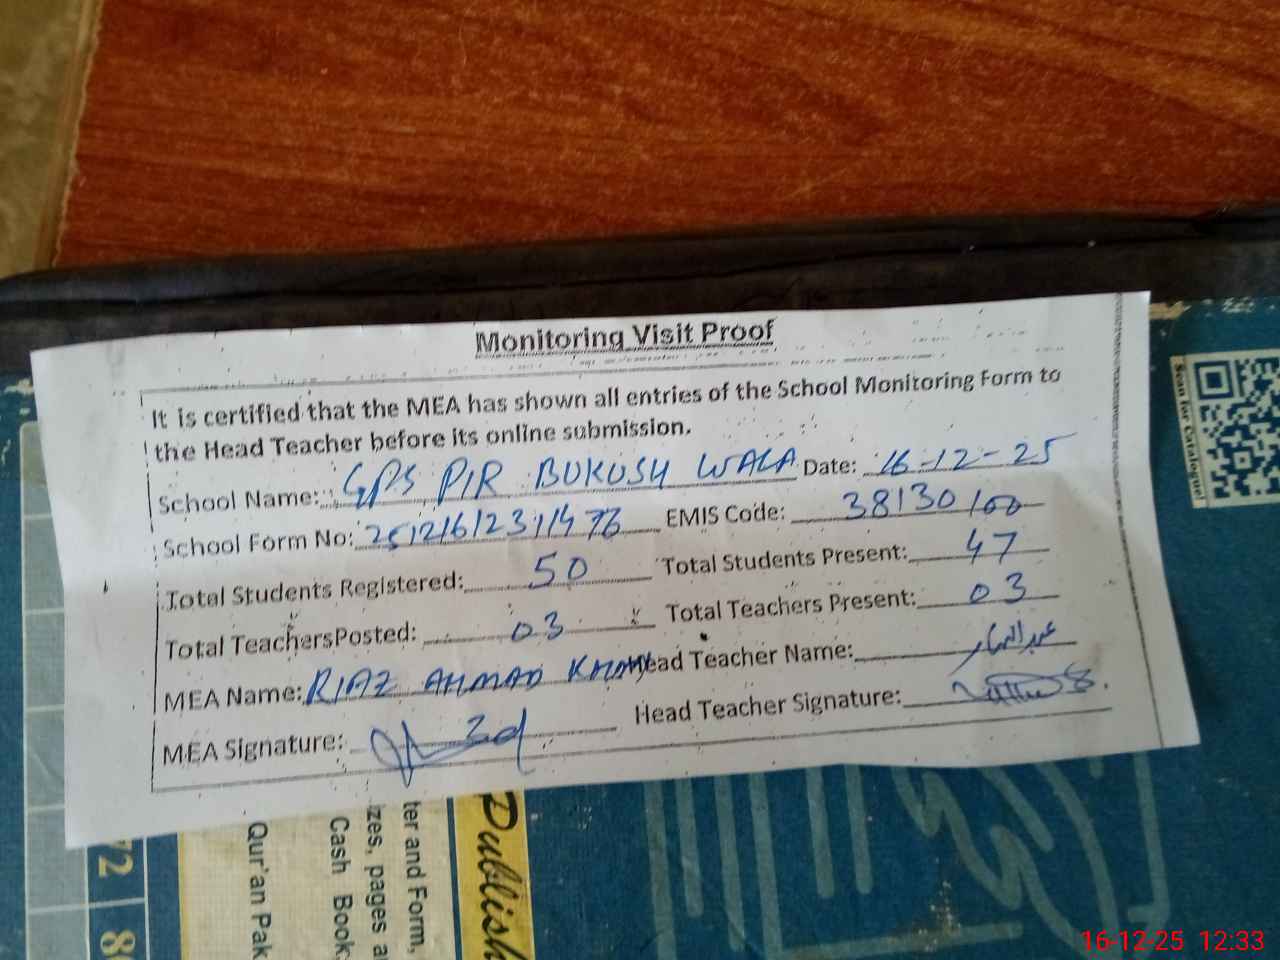 Monitoring Visit Proof
It is certified that the MEA has shown all entries of the School Monitoring Form to
the Head Teacher before its online submission.
School Name: GPS PIR BUKUSH WALA Date: 16-12-25
School Form No: EMIS Code: 38130100
Total Students Registered: 50 Total Students Present: 47
Total TeachersPosted: 03 Total Teachers Present: 03
MEA Name: RIAZ AHMAD KHAN Head Teacher Name:
MEA Signature: Head Teacher Signature:
Scan for Catalogue
72
Qur'an Pak
Cash Book
izes, pages a
ter and Form,
Publish
16-12-25 12:33